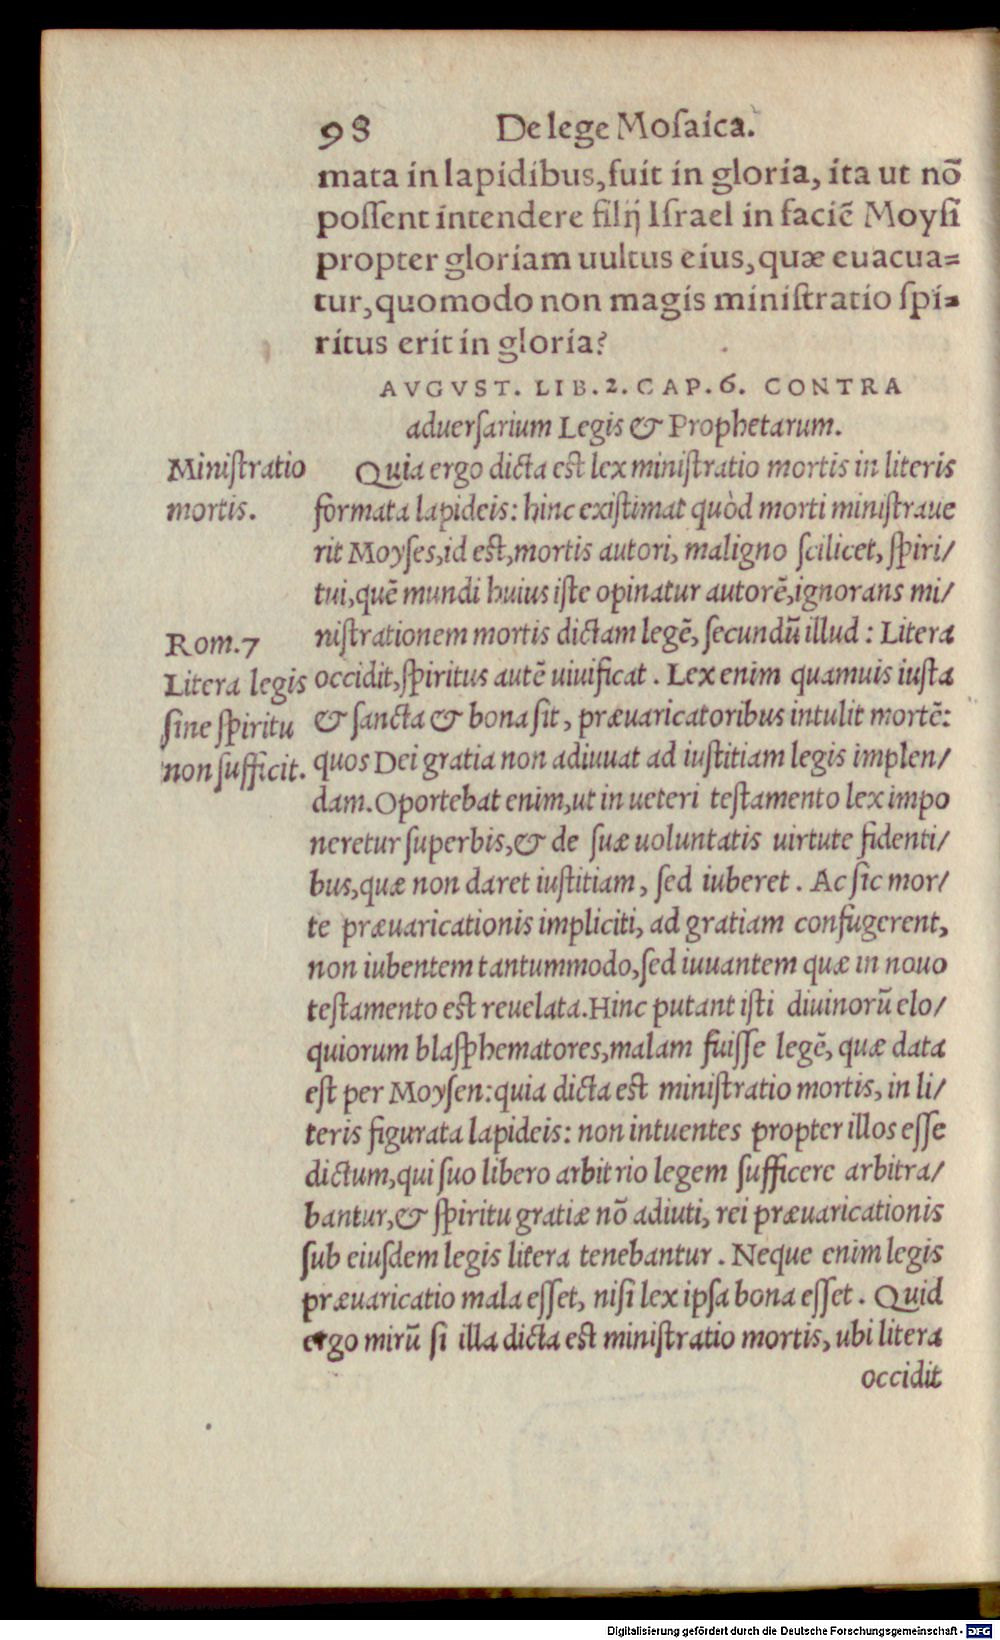 98 De lege Mosaica.
mata in lapidibus, fuit in gloria, ita ut nō
possent intendere filij Israel in faciē Moysi
propter gloriam uultus eius, quæ euacua=
tur, quomodo non magis ministratio spi=
ritus erit in gloria?
AVGVST. LIB. 2. CAP. 6. CONTRA
aduersarium Legis & Prophetarum.
Ministratio
mortis.
Quia ergo dicta est lex ministratio mortis in literis
formata lapideis: hinc existimat quòd morti ministraue
rit Moyses, id est, mortis autori, maligno scilicet, spiri/
tui, quē mundi huius iste opinatur autorē, ignorans mi/
nistrationem mortis dictam legē, secundū illud: Litera
occidit, spiritus autē uiuificat. Lex enim quamuis iusta
& sancta & bona sit, præuaricatoribus intulit mortē:
quos Dei gratia non adiuuat ad iustitiam legis implen/
dam. Oportebat enim, ut in ueteri testamento lex impo
neretur superbis, & de suæ uoluntatis uirtute fidenti/
bus, quæ non daret iustitiam, sed iuberet. Ac sic mor/
te præuaricationis impliciti, ad gratiam confugerent,
non iubentem tantummodo, sed iuuantem quæ in nouo
testamento est reuelata. Hinc putant isti diuinorū elo/
quiorum blasphematores, malam fuisse legē, quæ data
est per Moysen: quia dicta est ministratio mortis, in li/
teris figurata lapideis: non intuentes propter illos esse
dictum, qui suo libero arbitrio legem sufficere arbitra/
bantur, & spiritu gratiæ nō adiuti, rei præuaricationis
sub eiusdem legis litera tenebantur. Neque enim legis
præuaricatio mala esset, nisi lex ipsa bona esset. Quid
ergo mirū si illa dicta est ministratio mortis, ubi litera
occidit
Rom. 7
Litera legis
sine spiritu
non sufficit.
Digitalisierung gefördert durch die Deutsche Forschungsgemeinschaft - DFG